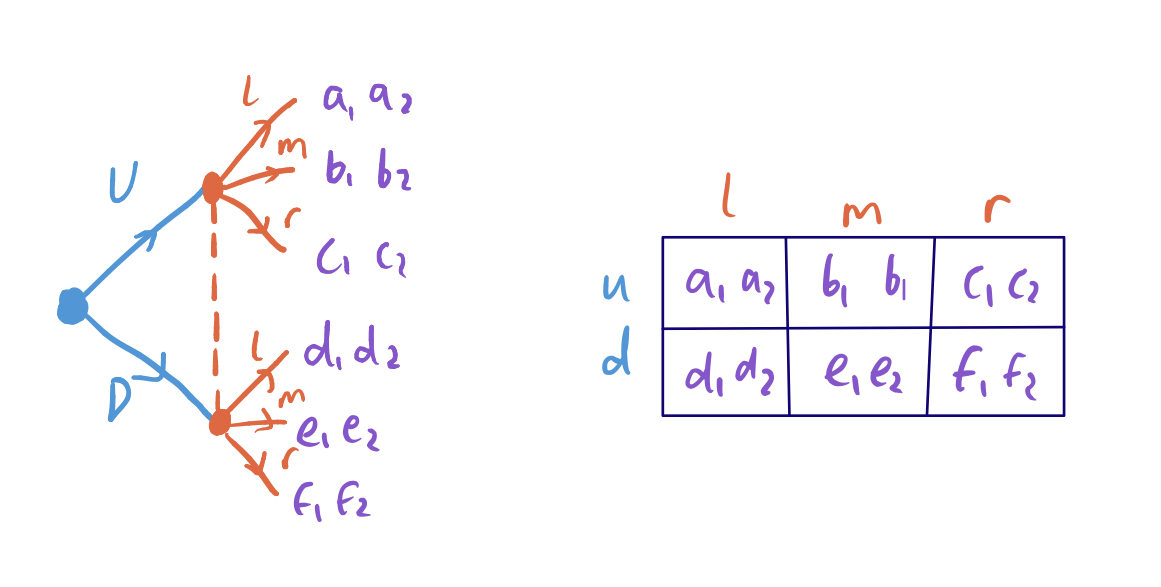 l a₁ a₂
m b₁ b₂
U
r c₁ c₂
l d₁ d₂
D m e₁ e₂
r f₁ f₂
l m r
u a₁ a₂ b₁ b₁ c₁ c₂
d d₁ d₂ e₁ e₂ f₁ f₂